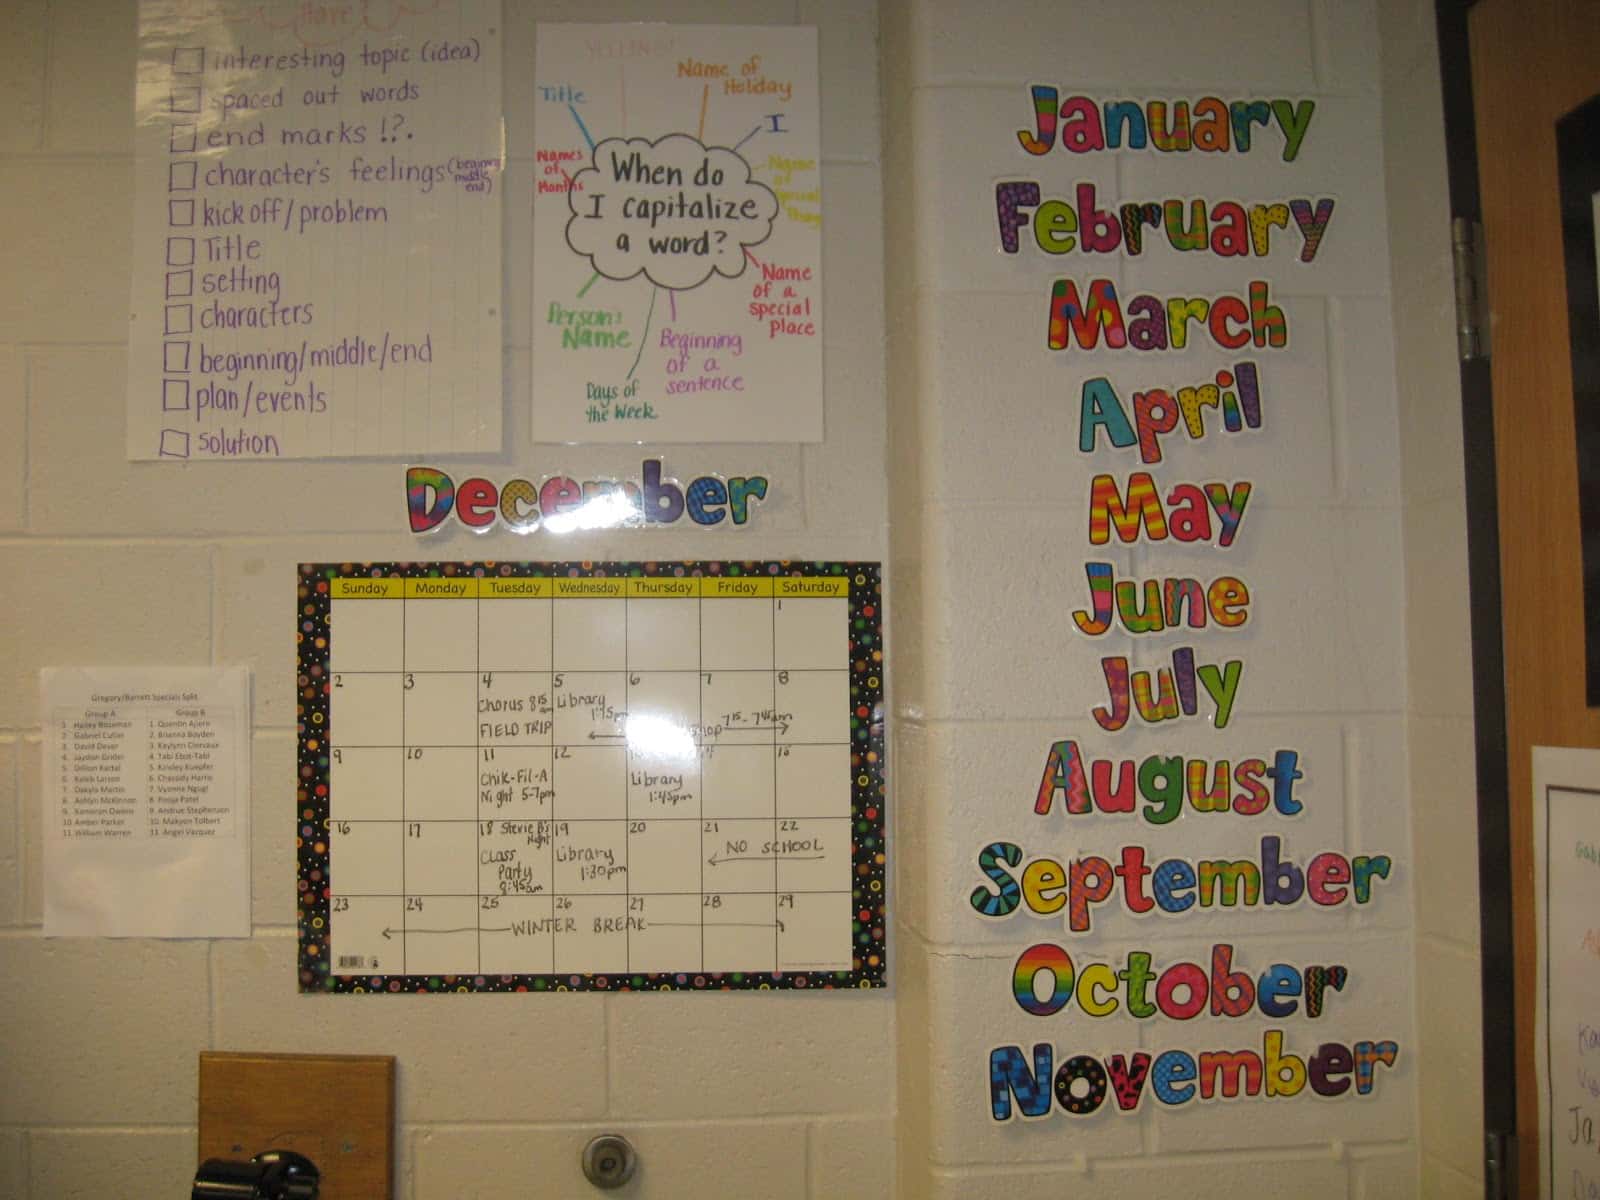 Have
interesting topic (idea)
spaced out words
end marks !?.
character's feelings (beginning
middle
end)
kick off/problem
Title
setting
characters
beginning/middle/end
plan/events
solution
YELLING!
Title
Name of
Holiday
I
Names
of
Months
Name
of
Special
Thing
When do
I capitalize
a word?
Persons
Name
Days of
the Week
Beginning
of a
sentence
Name
of a
special
place
December
Sunday Monday Tuesday Wednesday Thursday Friday Saturday
1
2 3 4 5 6 7 8
Chorus 8:15 am
FIELD TRIP
Library
1:15pm
shop 7:15-7:45am
9 10 11 12 13 14 15
Chik-Fil-A
Night 5-7pm
Library
1:45pm
16 17 18 Stevie B's 19 20 21 22
Night
Class
Party
8:45am
Library
1:30pm
NO SCHOOL
23 24 25 26 27 28 29
WINTER BREAK
Gregory/Barrett Specials Split
Group A Group B
1 Hailey Bozeman 1. Quentin Ajiero
2 Gabriel Cutler 2. Brianna Boyden
3. David Dever 3. Kaylynn Clervaux
4. Jaydon Grider 4. Tabi Etot-Tabi
5. Dillon Kartal 5. Kinsley Kuepfer
6. Kaleb Larson 6. Chassidy Harris
7. Dakyla Martin 7. Vyonne Ngugi
8. Ashlyn McKinnon 8. Pooja Patel
9. Kameron Owens 9. Andrue Stephenson
10 Amber Parker 10. Makyon Tolbert
11 William Warren 11. Angel Vazquez
January
February
March
April
May
June
July
August
September
October
November